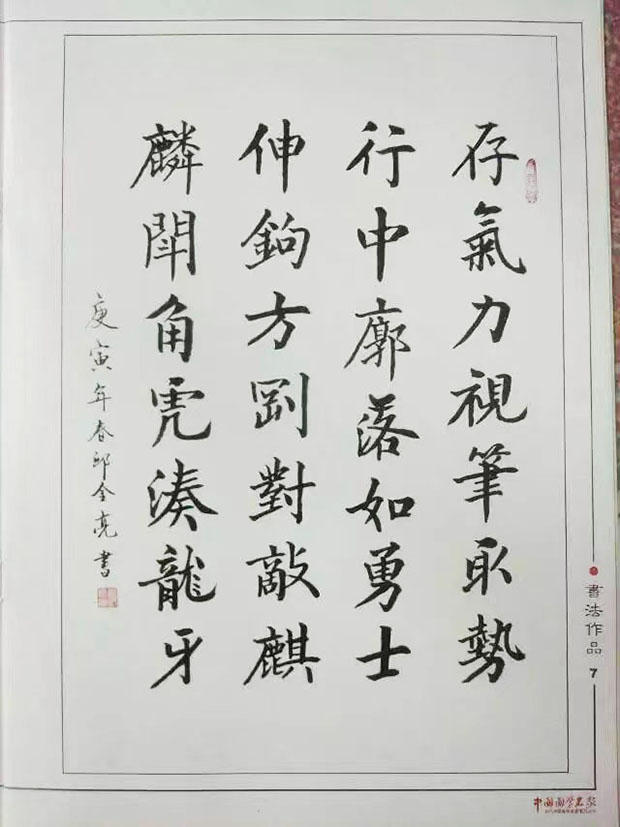 存氣力視筆取勢
行中廓落如勇士
伸鉤方剛對敵麒
麟鬪角虎湊龍牙
庚寅年春邱全亮書
書法作品
7
中国国学名家